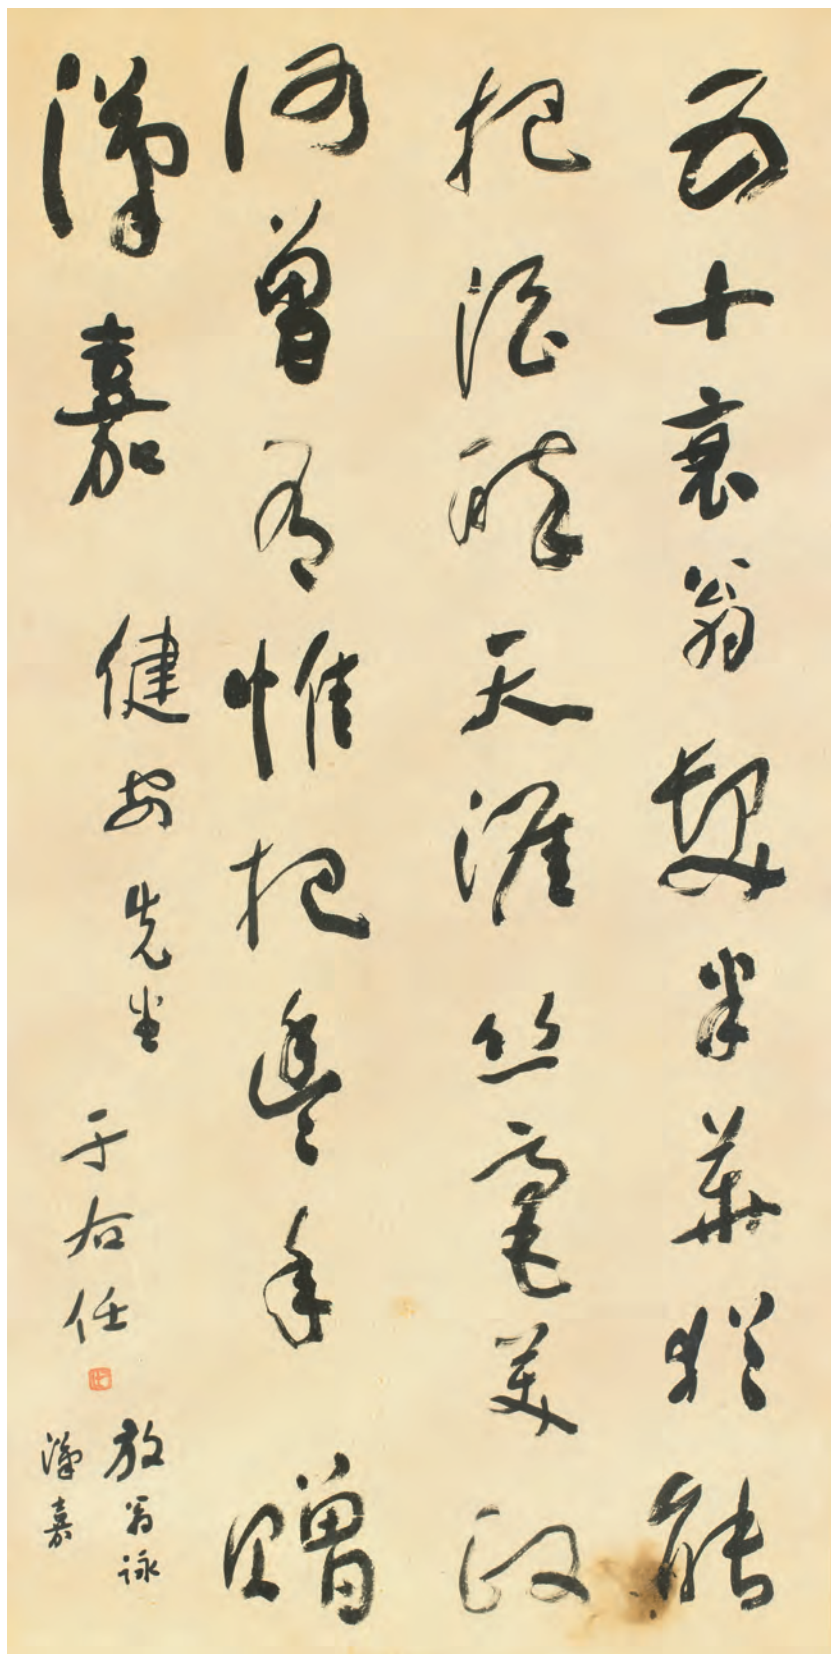 五十衰翁鬓半華猶能
把酒醉天涯丝毫美政
何曾有惟把豐年贈
漢嘉
健安先生
于右任
放翁詠
漢嘉